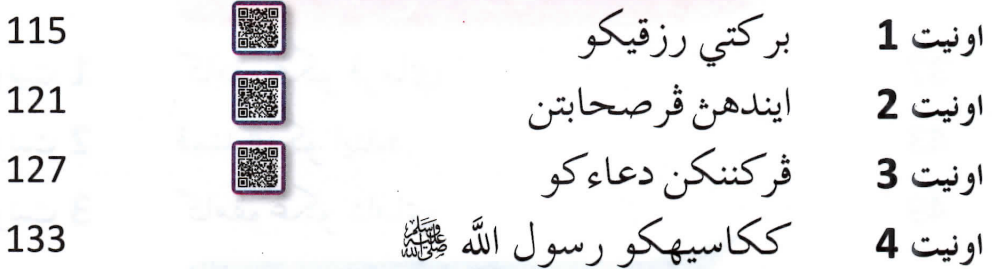 اونيت 1 بركتي رزقيكو 115
اونيت 2 ايندهڽ ڤرصحابتن 121
اونيت 3 ڤركننكن دعاءكو 127
اونيت 4 ككاسيهكو رسول الله ﷺ 133